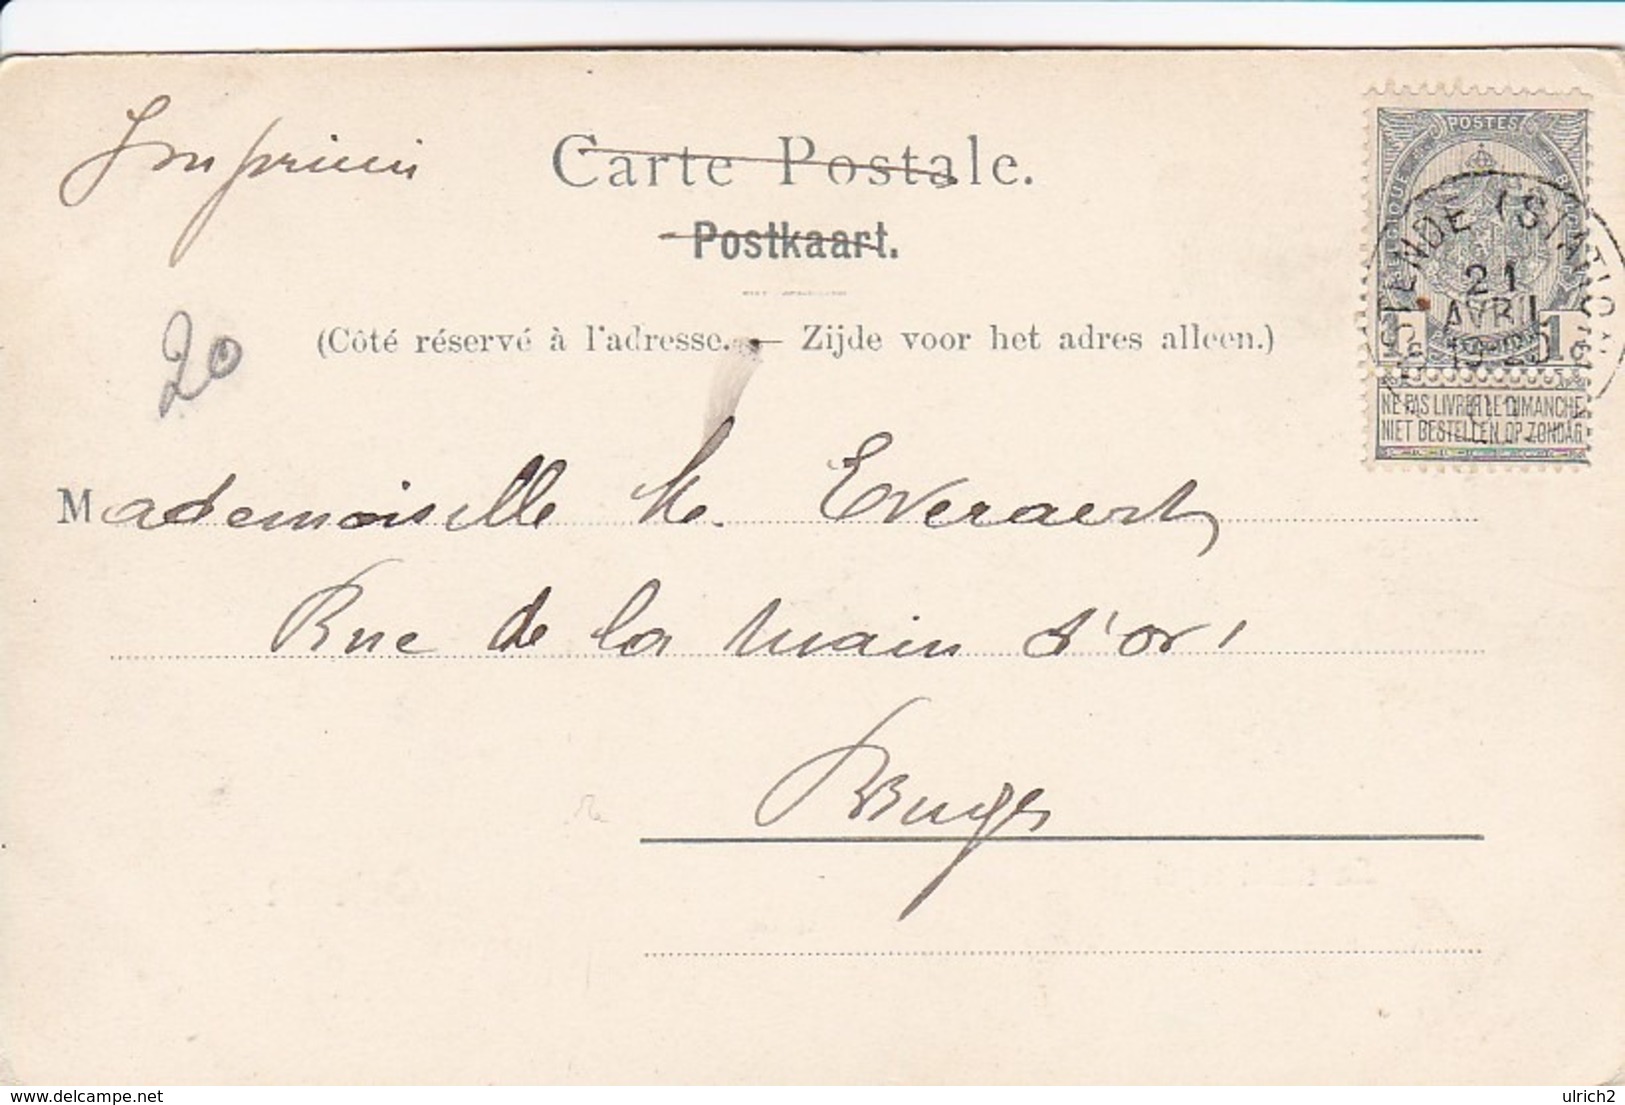 Imprimé
Carte Postale.
Postkaart.
(Côté réservé à l'adresse. — Zijde voor het adres alleen.)
20
POSTES
BELGIQUE
OSTENDE (STATION)
21
AVRIL
1 1
NE PAS LIVRER LE DIMANCHE
NIET BESTELLEN OP ZONDAG
Mademoiselle M. Everaert
Rue de la Main d'or
Bruges
delcampe.net
ulrich2